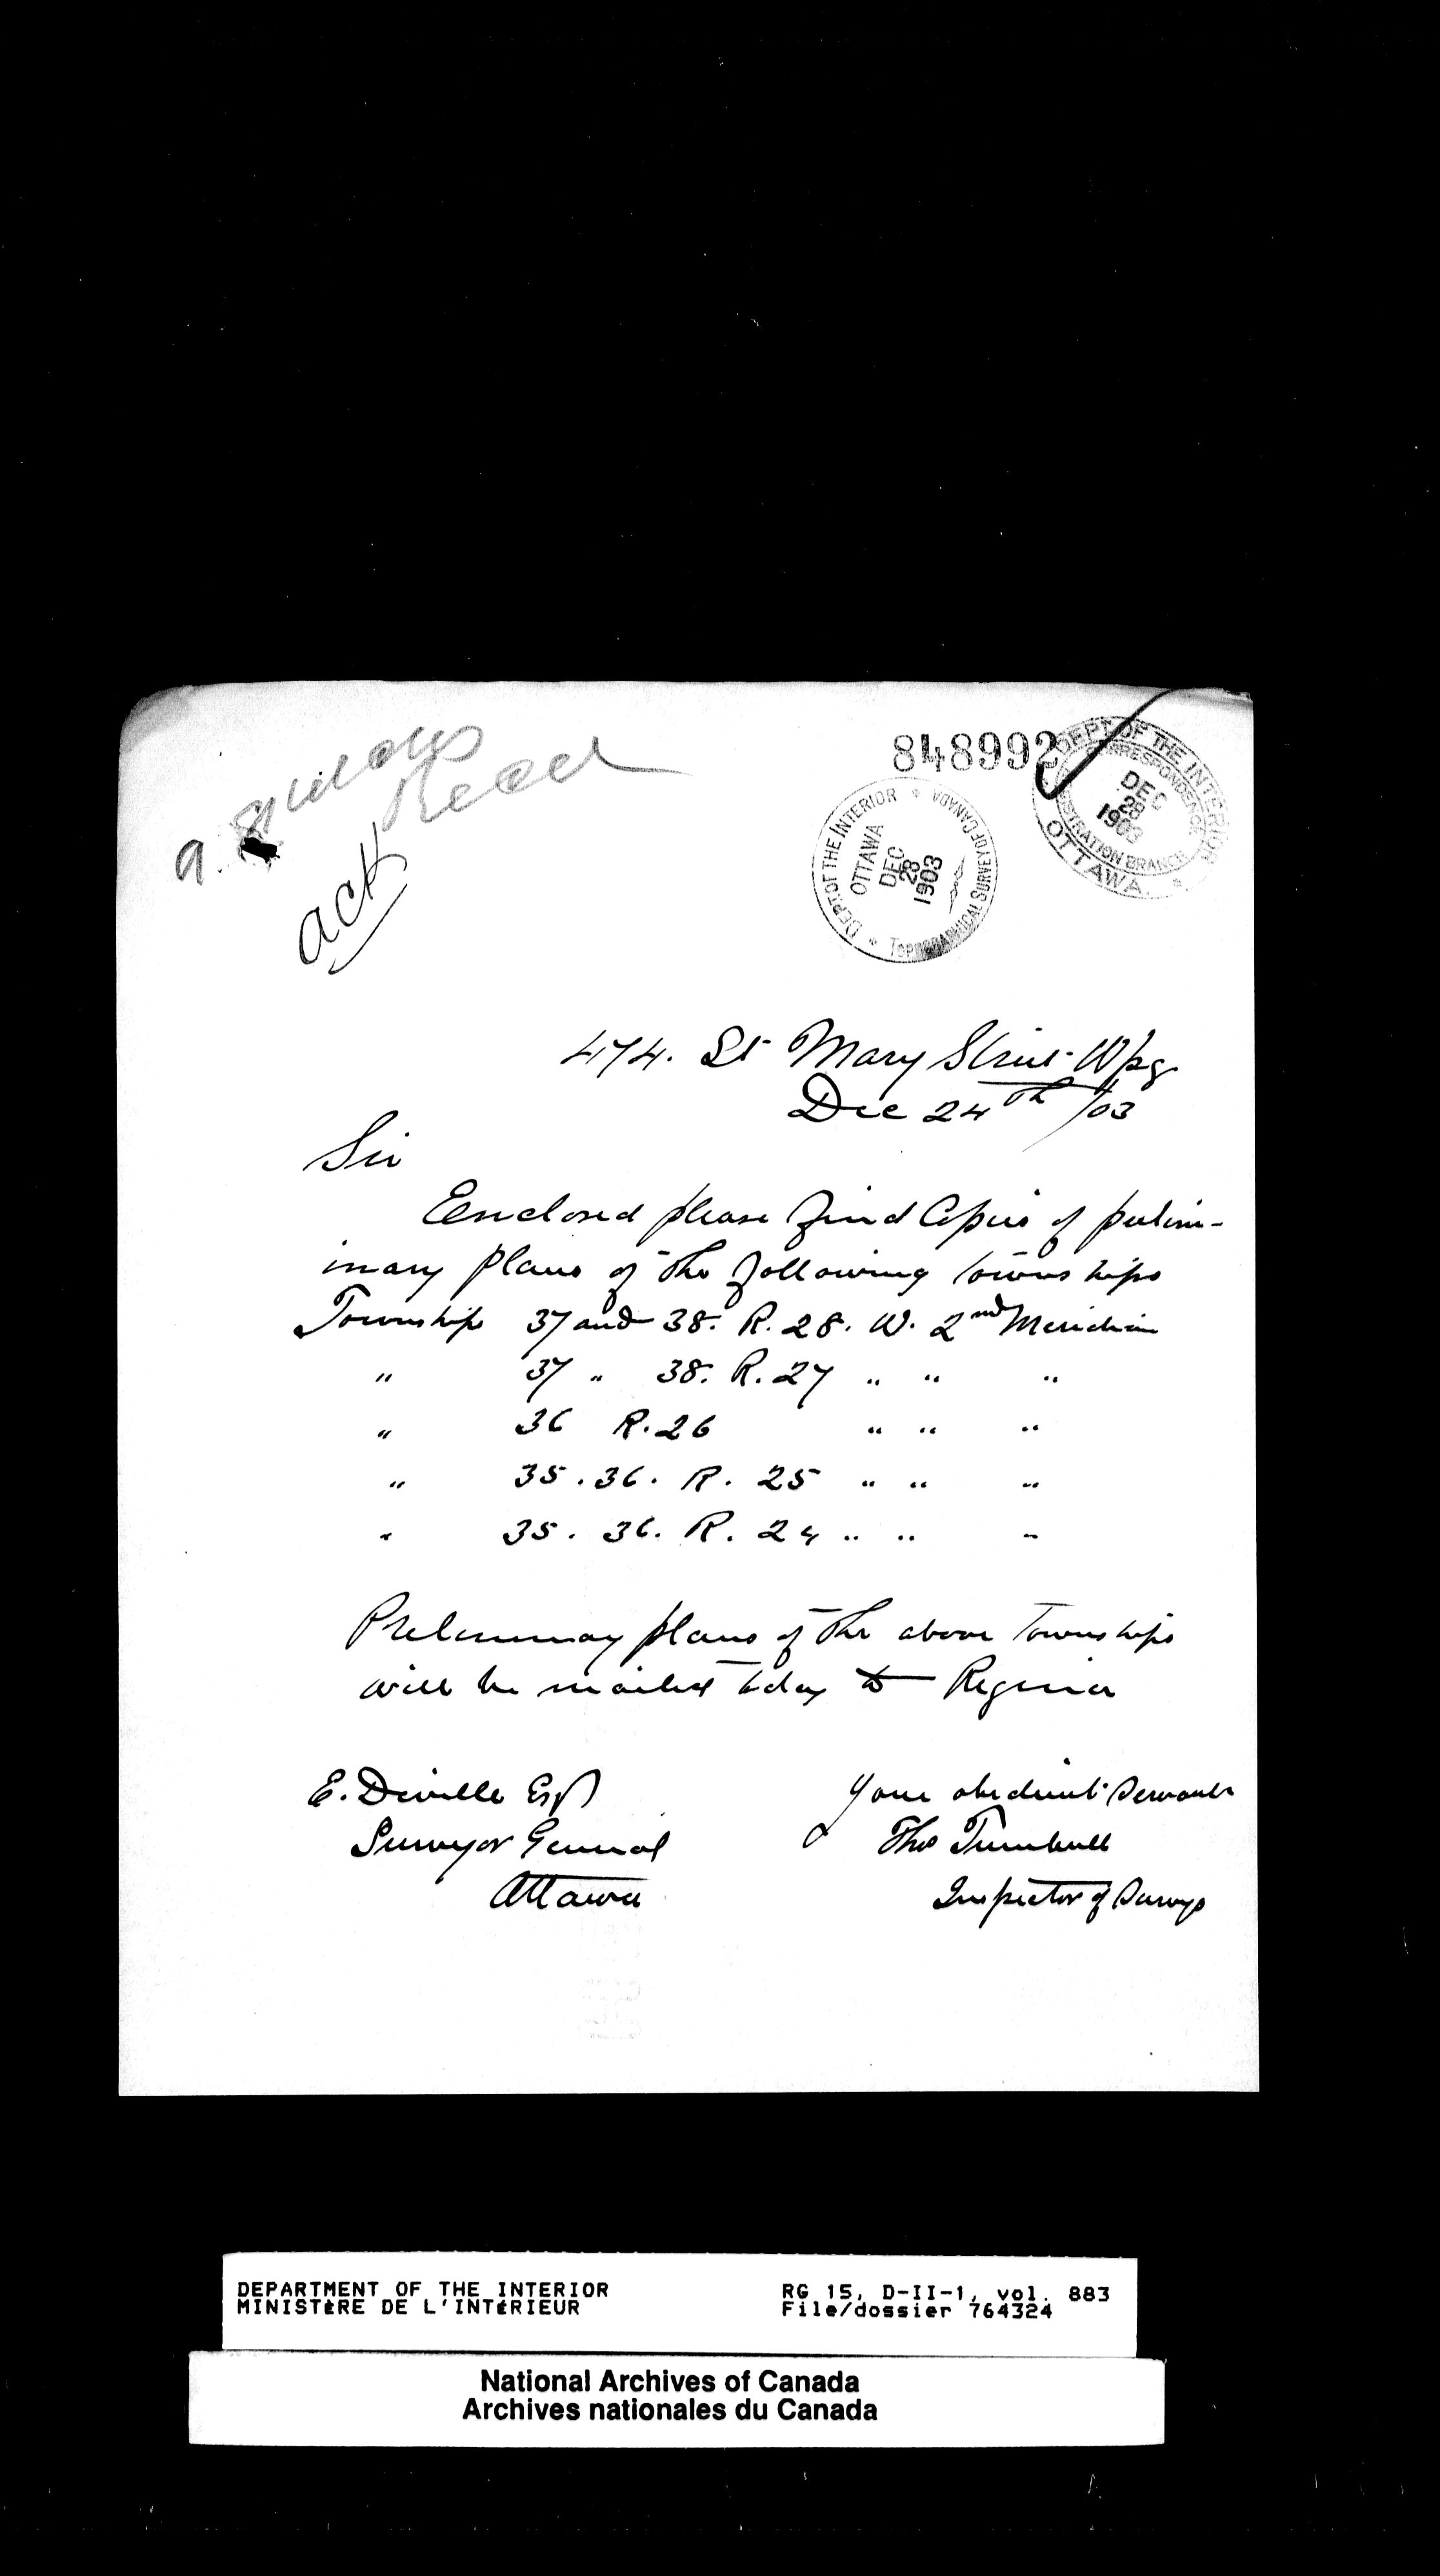 848992
DEPT. OF THE INTERIOR
OTTAWA
DEC
28
1903
TOPOGRAPHICAL SURVEY OF CANADA
DEPT OF THE INTERIOR
CORRESPONDENCE
DEC
28
1903
REGISTRATION BRANCH
OTTAWA
Recd
ack
474. St Mary Street Wpg
Dec 24th /03
Sir
Enclosed please find Copies of prelim-
inary plans of the following townships
Township 37 and 38. R. 28. W. 2nd Meridian
" 37 " 38. R. 27 " " "
" 36 R. 26 " " "
" 35. 36. R. 25 " " "
" 35. 36. R. 24 " " "
Preliminary plans of the above Townships
will be mailed today to Regina
Your obedient Servant
E. Deville Esq
Thos Turnbull
Surveyor General
Inspector of Surveys
Ottawa
DEPARTMENT OF THE INTERIOR
MINISTÈRE DE L'INTÉRIEUR
RG 15, D-II-1, vol. 883
File/dossier 764324
National Archives of Canada
Archives nationales du Canada